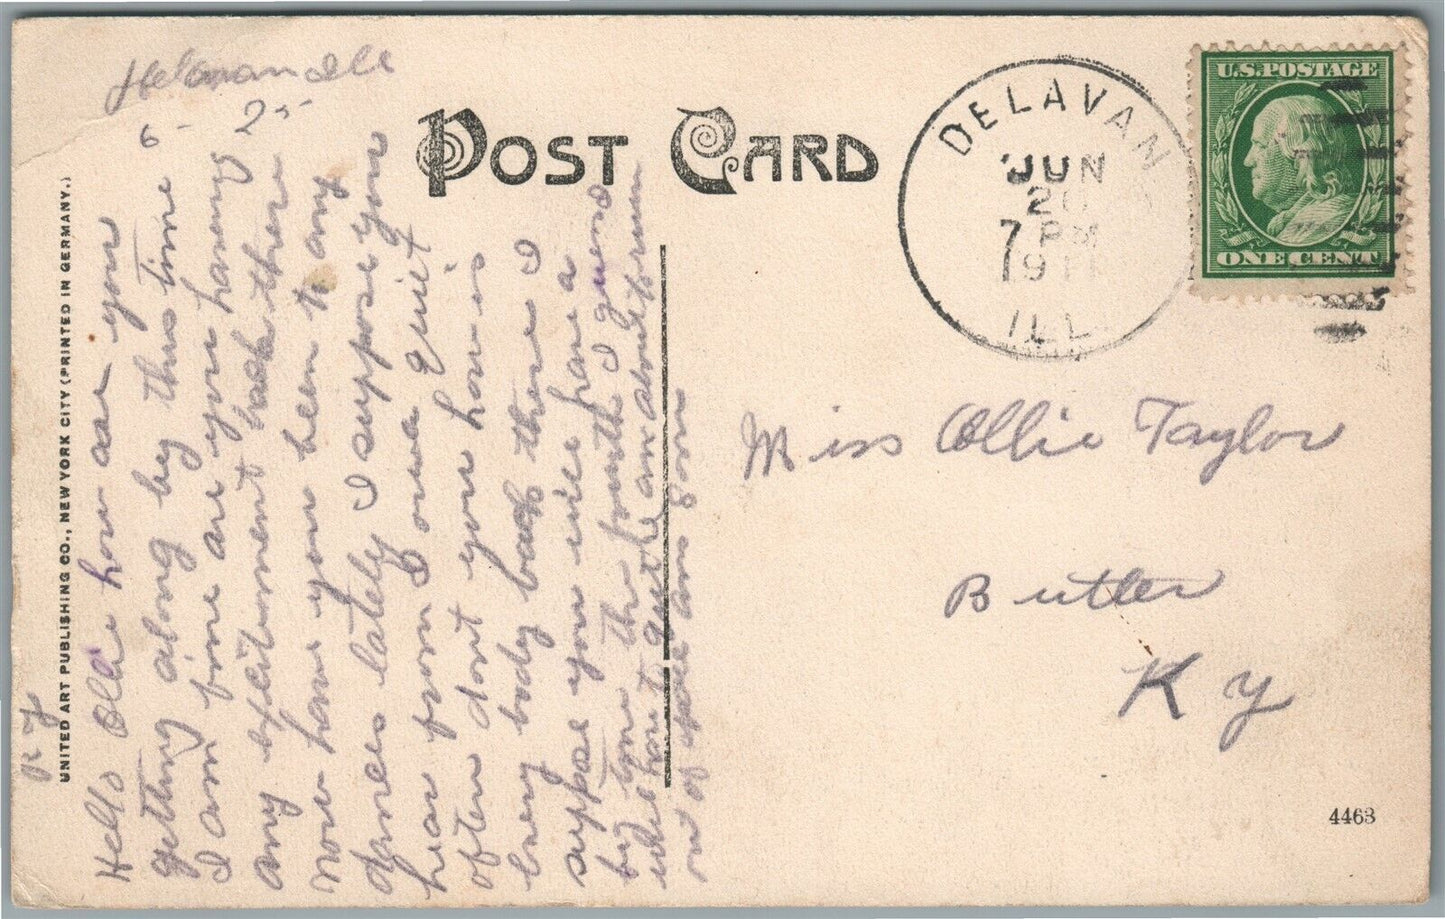 POST CARD
DELAVAN
JUN
20
7 PM
1911
ILL.
U.S. POSTAGE
ONE CENT
Miss Ollie Taylor
Butler
Ky
4463
UNITED ART PUBLISHING CO., NEW YORK CITY (PRINTED IN GERMANY.)
Delavan Ill
6 - 25
Hello Ollie how are you
getting along by this time
I am fine are you having
any excitement back there
now have you been to any
dances lately I suppose you
hear from I owa quiet
often dont you how is
every body back there I
suppose you will have a
time the fourth I guess